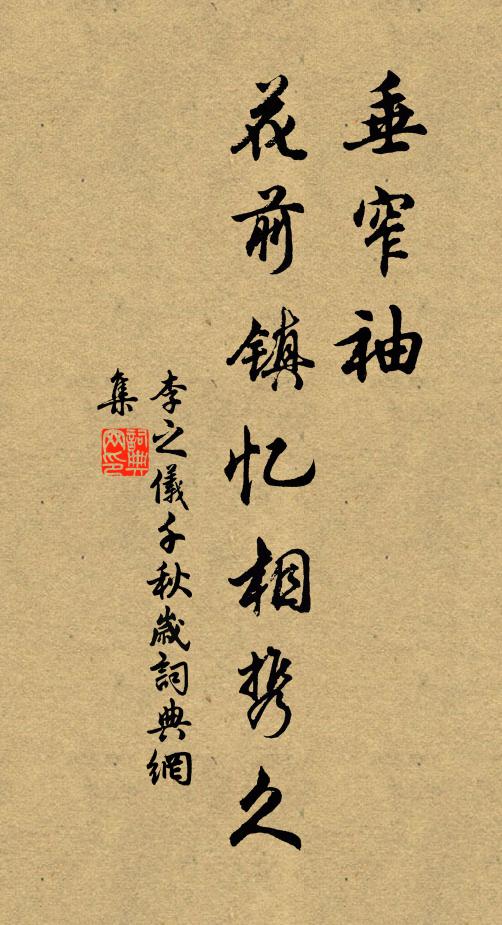 垂窄袖
花前镇忆相携久
李之儀千秋歲詞典網
集
詞典网印